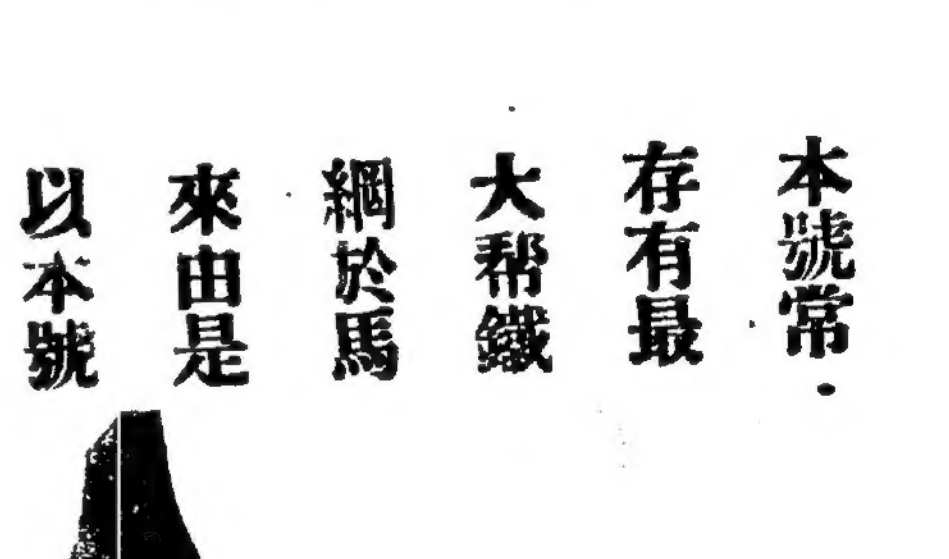 本號常
存有最
大帮鐵
網於馬
來由是
以本號